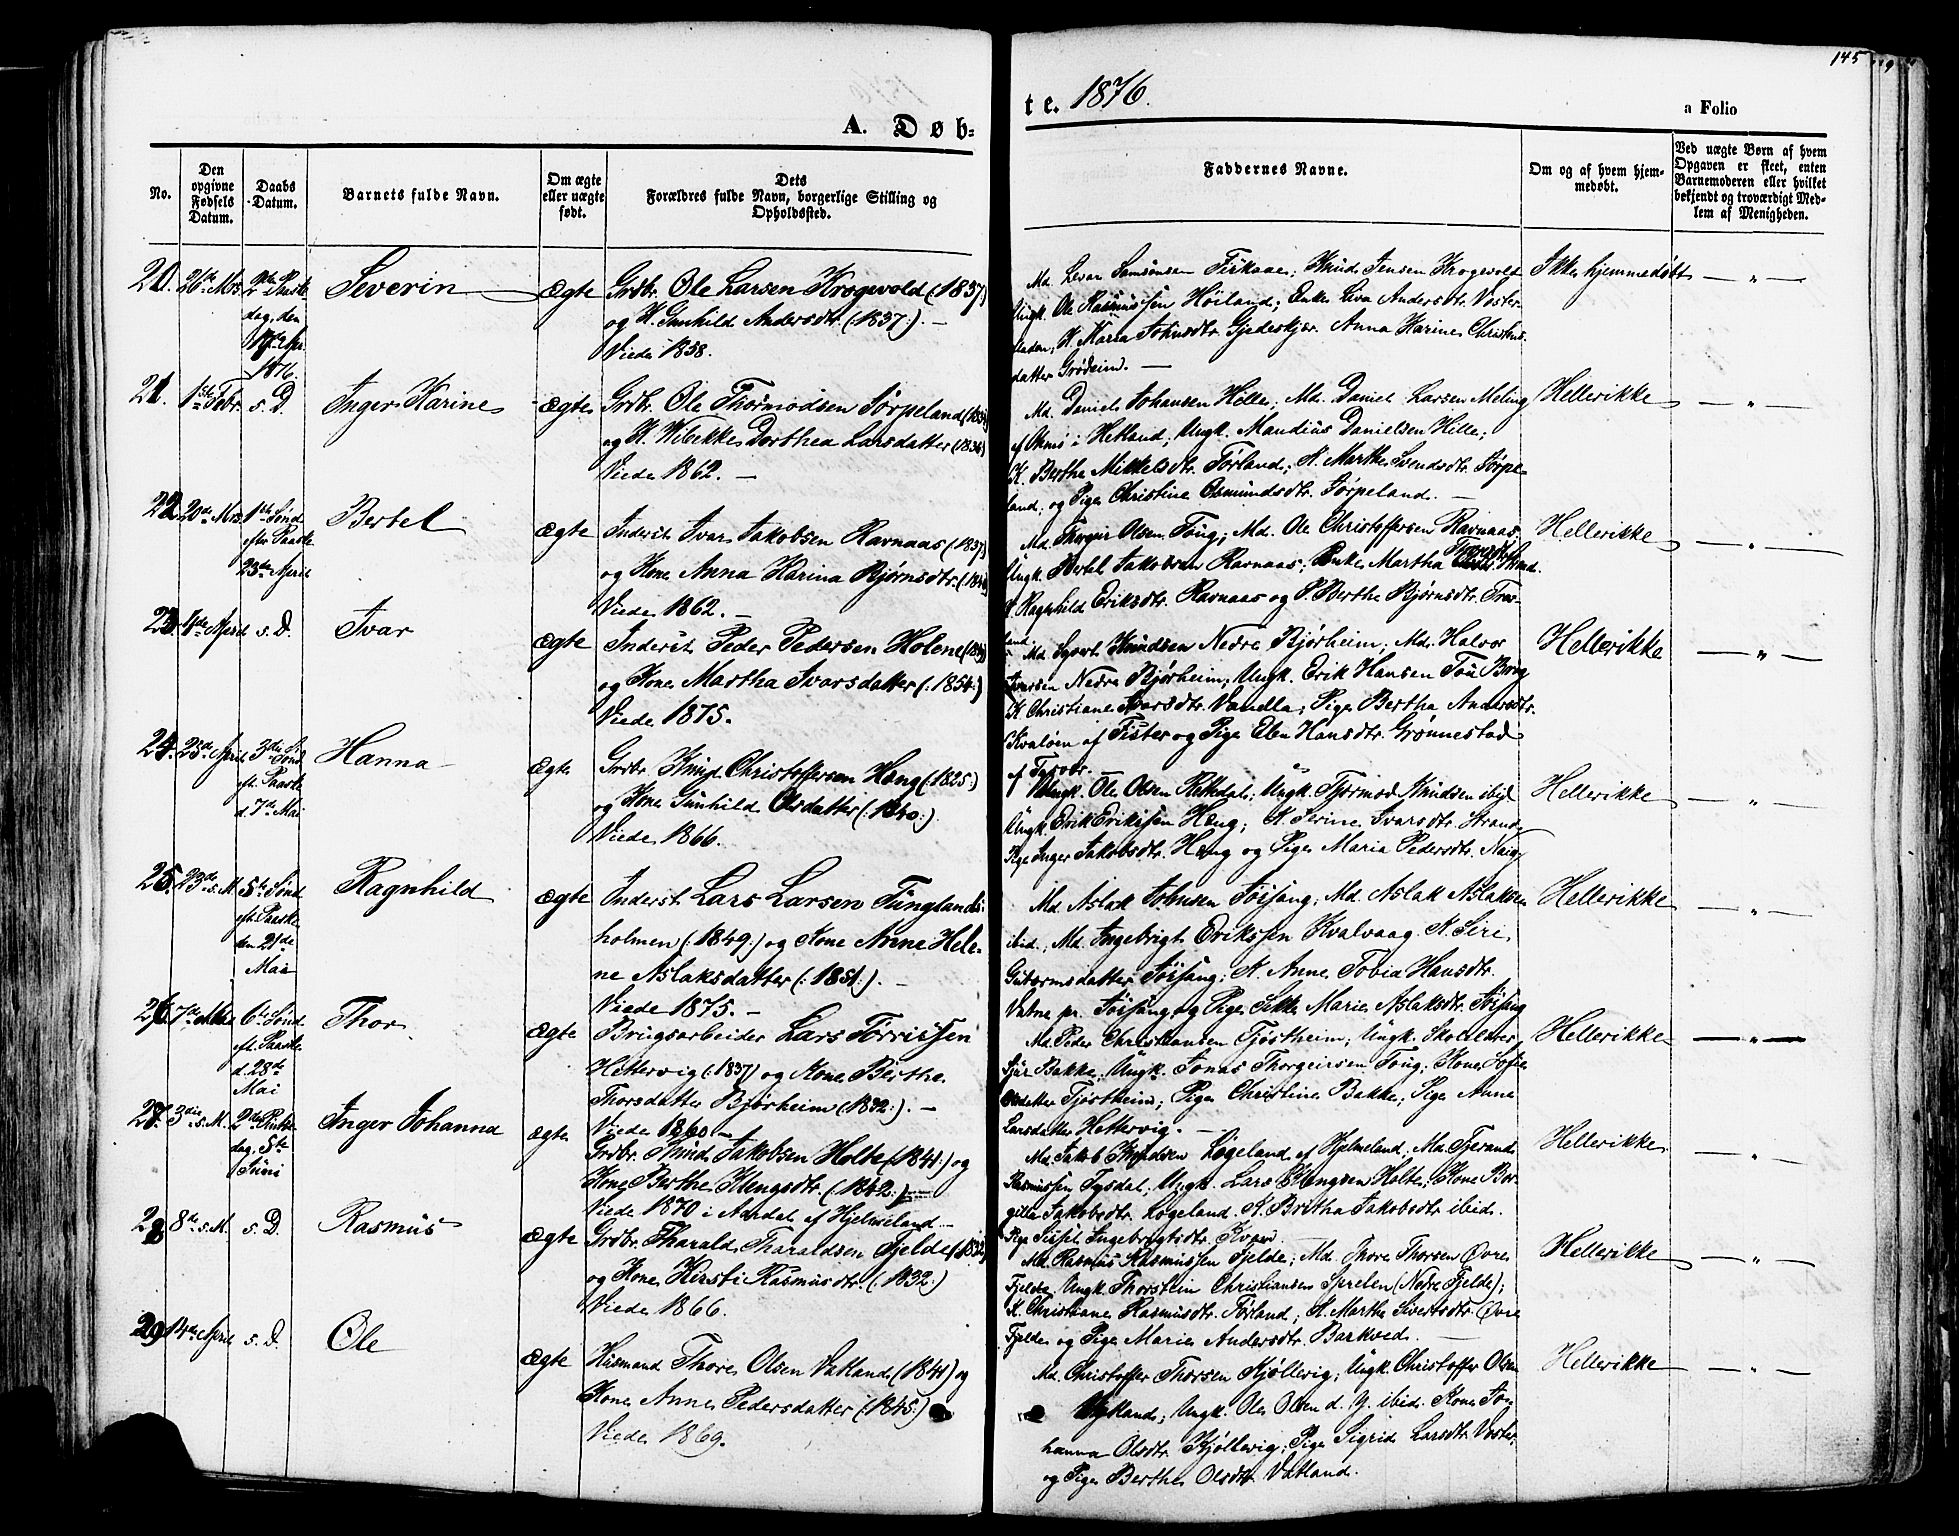 145
A. Døb-
te. 1876.
a Folio
No.
Den opgivne Fødsels Datum.
Daabs Datum.
Barnets fulde Navn.
Om ægte eller uægte født.
Dets
Forældres fulde Navn, borgerlige Stilling og
Opholdssted.
Faddernes Navne.
Om og af hvem hjem-
medøbt.
Ved uægte Børn af hvem
Opgaven er skeet, enten
Barnemoderen eller hvilket
bekjendt og troværdigt Med-
lem af Menigheden.
20. 26de Mrs 2den Paaske
dag, den
1876
Severin
ægte
Grdbr. Ole Larsen Krogevold (:1837)
og K. Gunhild Andersdtr. (:1837:). —
Viede 1858.
Md. Levar Samsonsen Fiskaae; Knud Jensen Krogevold
Ungk. Ole Rasmussen Høiland; Enke Liva Andersdtr. Voster-
K. Maria Johnsdtr. Gjedeskjær. Anna Karine Christens-
datter Grødeim. —
Ikke hjemmedøbt
— " —
21. 1ste Febr. s. D.
Inger Karine
ægte
Grdbr. Ole Thormodsen Jørpeland
og K. Wibekke Dorthea Larsdatter (1836)
Viede 1862. —
Md. Daniel Johansen Hille; Md. Daniel Larsen Meling
i Hetland; Ungk. Mandius Danielsen Hille;
K. Bertha Mikkelsdtr. Førland; K. Marthe Svendsdtr. Jørpe-
land, og Pige Christine Osmundsdtr. Jørpeland. —
Hellerikke
— " —
22. 20de Mrs 1ste Sønd.
eftr. Paaske
23de April
Bertel
ægte
Inderst Ivar Jakobsen Ravnaas (1837)
og Kone Anna Karina Bjørnsdtr.
Viede 1862. —
Md. Thorgeir Olsen Toug; Md. Ole Christoffersen Ravnaas;
Ungk. Bertel Jakobsen Ravnaas; Enke Martha
K. Ragnhild Eriksdtr. Ravnaas og P. Berthe Bjørnsdtr.
Hellerikke
— " —
23. 4de April s. D.
Ivar
ægte
Inderst Peder Pedersen Holene
og Kone Martha Ivarsdatter (:1854:)
Viede 1875.
Md. Sjovert Knudsen Nedre Bjørheim; Md. Halvor
Ivarsen Nedre Bjørheim; Ungk. Erik Hansen Tou Brug
K. Christiane Ivarsdtr. Vandla; Pige Bertha Andersdtr.
Kvaløen af Fister og Pige Elen Hansdtr. Grønnestad
Hellerikke
— " —
24. 25de April 3die S.
Sønd.
eft. Paaske
d. 7de Mai
Hanna
ægte
Grdbr. Knud Christoffersen Heng (:1825:)
og Kone Gunhild Olsdatter (:1840:)
Viede 1866.
Ungk. Ole Olsen Rettedal; Ungk. Tjermod Knudsen ibid
Ungk. Erik Erikssen Heng; K. Serine Ivarsdtr. Strand
Pige Inger Jakobsdtr. Heng og Pige Maria Pedersdtr. Naig
Hellerikke
— " —
25. 23de s. M. 5te Sønd.
eft. Paaske
den 21de
Mai
Ragnhild
ægte
Inderst Lars Larsen Tunglands-
holmen (:1849:) og Kone Anne Hele-
ne Aslaksdatter (:1851:). —
Viede 1875. —
Md. Aslak Johnsen Idsøe; Md. Aslak Aslaksen
ibid; Md. Ingebrigt Erikssen Kvalvaag. K. Siri
K. Anne Tobia Hansdtr.
og Pige Sikke Marie Aslaksdtr.
Hellerikke
— " —
26. 7de Mai 6te Sønd.
eft. Paaske
d. 28de
Mai
Thor
ægte
Brugsarbeider Lars Tørrissen
Hettervig (:1837) og Kone Berthe
Thorsdatter Bjørheim (1832:). —
Viede 1860 —
Md. Peder Christiansen Tjøstheim; Ungk. Skolelærer
Sjur Bakke; Ungk. Jonas Thorgeirsen Toug; Kone Sofie
Olsdatter Tjøstheim; Pige Christine Bakke; Pige Anna
Larsdatter Hettervig. —
Hellerikke
— " —
27. 3die s. M. 2den Pintse-
dag, 5te
Juni
Inger Johanna
ægte
Grdbr. Knud Jakobsen Holte (:1841:) og
Kone Berthe Klengsdtr. (:1842:)
Viede 1870 i Aardal af Hjelmeland —
Md. Jakob Knudsen Løgeland af Hjelmeland; Md. Tjerand
Rasmussen Tysdal; Ungk. Lars Klengsen Holte; Kone Bor-
gilla Jakobsdtr. Løgeland. K. Britha Jakobsdtr ibid.
Pige Sissel Ingebrigtsdtr.
Hellerikke
— " —
28. 8de s. M. s. D.
Rasmus
ægte
Grdbr. Tharald Tharaldsen Fjelde
og Kone Kirsti Rasmusdtr. (:1832:)
Viede 1866.
Md. Rasmus Rasmussen Fjelde; Md. Thore Thorsen Øvre
Fjelde; Ungk. Thorstein Christiansen (Nedre Fjelde);
K. Christiane Rasmusdtr. Førland; K. Marthe Sivertsdtr. Øvre
Fjelde og Pige Marie Andersdtr. Barkved. —
Hellerikke
— " —
29. 14de April s. D.
Ole
ægte
Husmand Thore Olsen Vatland (1841) og
Kone Anne Pedersdatter (:1845:)
Viede 1869.
Md. Christoffer Thorsen Kjøllevig; Ungk. Christoffer Olsen
Ungk. Ole Olsen d. y. ibid. Kone Jo-
hanna Olsdtr. Kjøllevig; Pige Sigrid Larsdtr. Voster
og Pige Berthe Olsdtr. Vatland.
Hellerikke
— " —